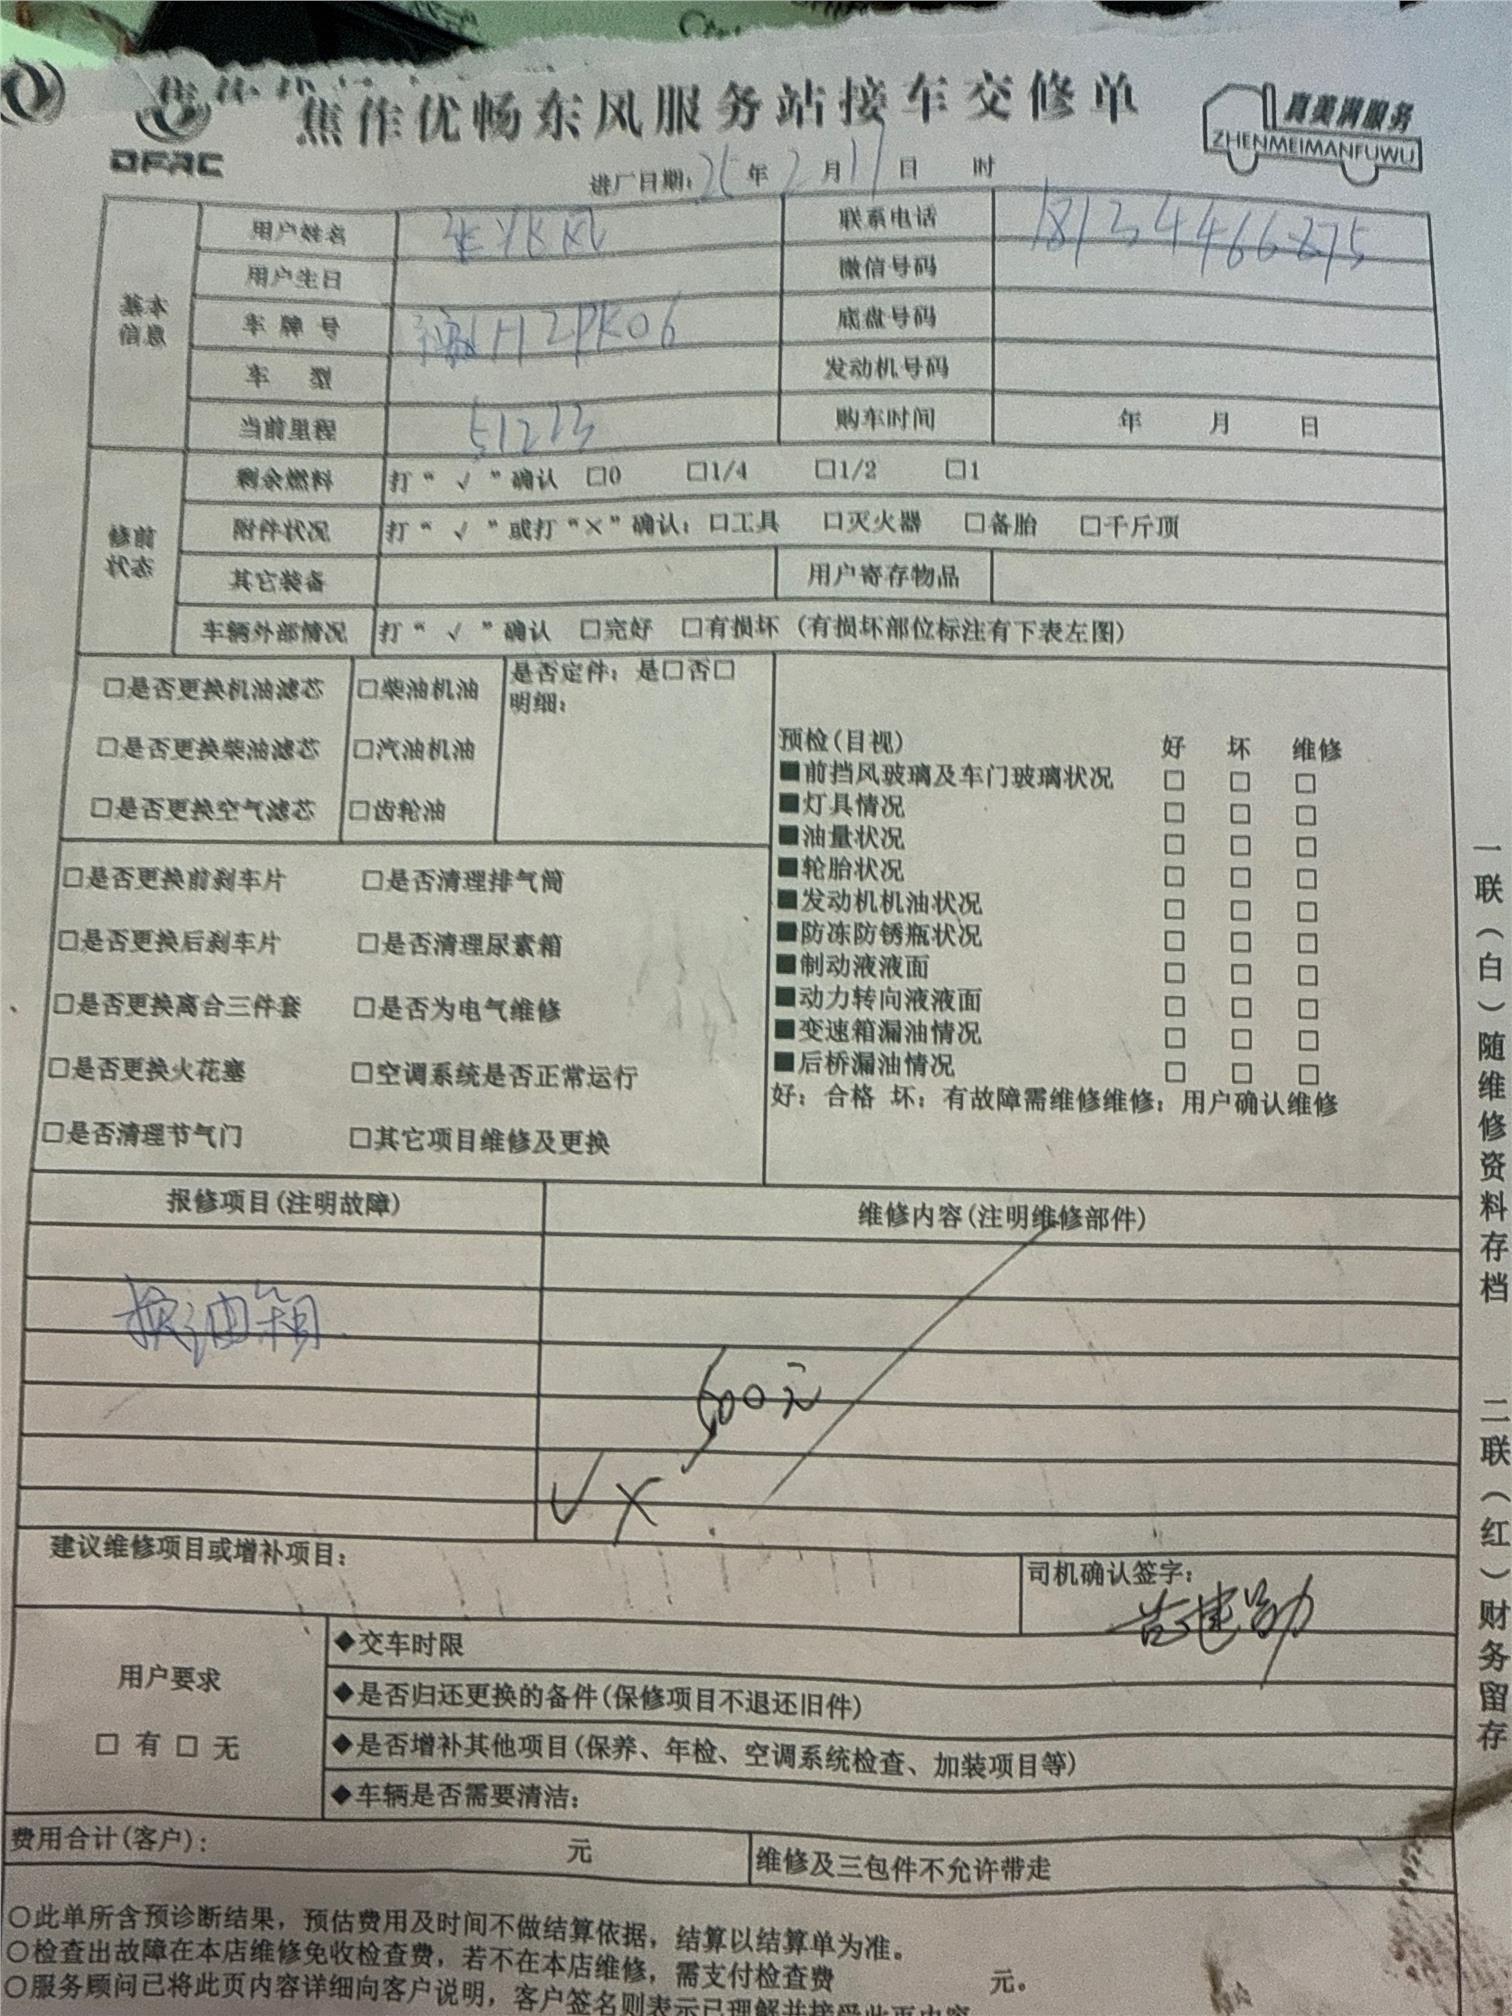 焦作优畅东风服务站接车交修单
DFAC
真美满服务
ZHENMEIMANFUWU
进厂日期：25年2月17日 时
基本信息
用户姓名 联系电话 18134466275
用户生日 微信号码
车牌号 豫H2PK06 底盘号码
车 型 发动机号码
当前里程 51223 购车时间 年 月 日
修前状态
剩余燃料 打“√”确认 □0 □1/4 □1/2 □1
附件状况 打“√”或打“×”确认：□工具 □灭火器 □备胎 □千斤顶
其它装备 用户寄存物品
车辆外部情况 打“√”确认 □完好 □有损坏（有损坏部位标注有下表左图）
□是否更换机油滤芯 □柴油机油
□是否更换柴油滤芯 □汽油机油
□是否更换空气滤芯 □齿轮油
是否定件：是□否□
明细：
□是否更换前刹车片 □是否清理排气筒
□是否更换后刹车片 □是否清理尿素箱
□是否更换离合三件套 □是否为电气维修
□是否更换火花塞 □空调系统是否正常运行
□是否清理节气门 □其它项目维修及更换
预检(目视) 好 坏 维修
■前挡风玻璃及车门玻璃状况 □ □ □
■灯具情况 □ □ □
■油量状况 □ □ □
■轮胎状况 □ □ □
■发动机机油状况 □ □ □
■防冻防锈瓶状况 □ □ □
■制动液液面 □ □ □
■动力转向液液面 □ □ □
■变速箱漏油情况 □ □ □
■后桥漏油情况 □ □ □
好：合格 坏：有故障需维修维修：用户确认维修
报修项目(注明故障) 维修内容(注明维修部件)
换油箱
600元
√ X
建议维修项目或增补项目：
司机确认签字：
苦建勋
用户要求
□ 有 □ 无
◆交车时限
◆是否归还更换的备件(保修项目不退还旧件)
◆是否增补其他项目(保养、年检、空调系统检查、加装项目等)
◆车辆是否需要清洁：
费用合计(客户)： 元 维修及三包件不允许带走
○此单所含预诊断结果，预估费用及时间不做结算依据，结算以结算单为准。
○检查出故障在本店维修免收检查费，若不在本店维修，需支付检查费 元。
○服务顾问已将此页内容详细向客户说明，客户签名则表示已理解并接受此页内容
一联（白）随维修资料存档
二联（红）财务留存